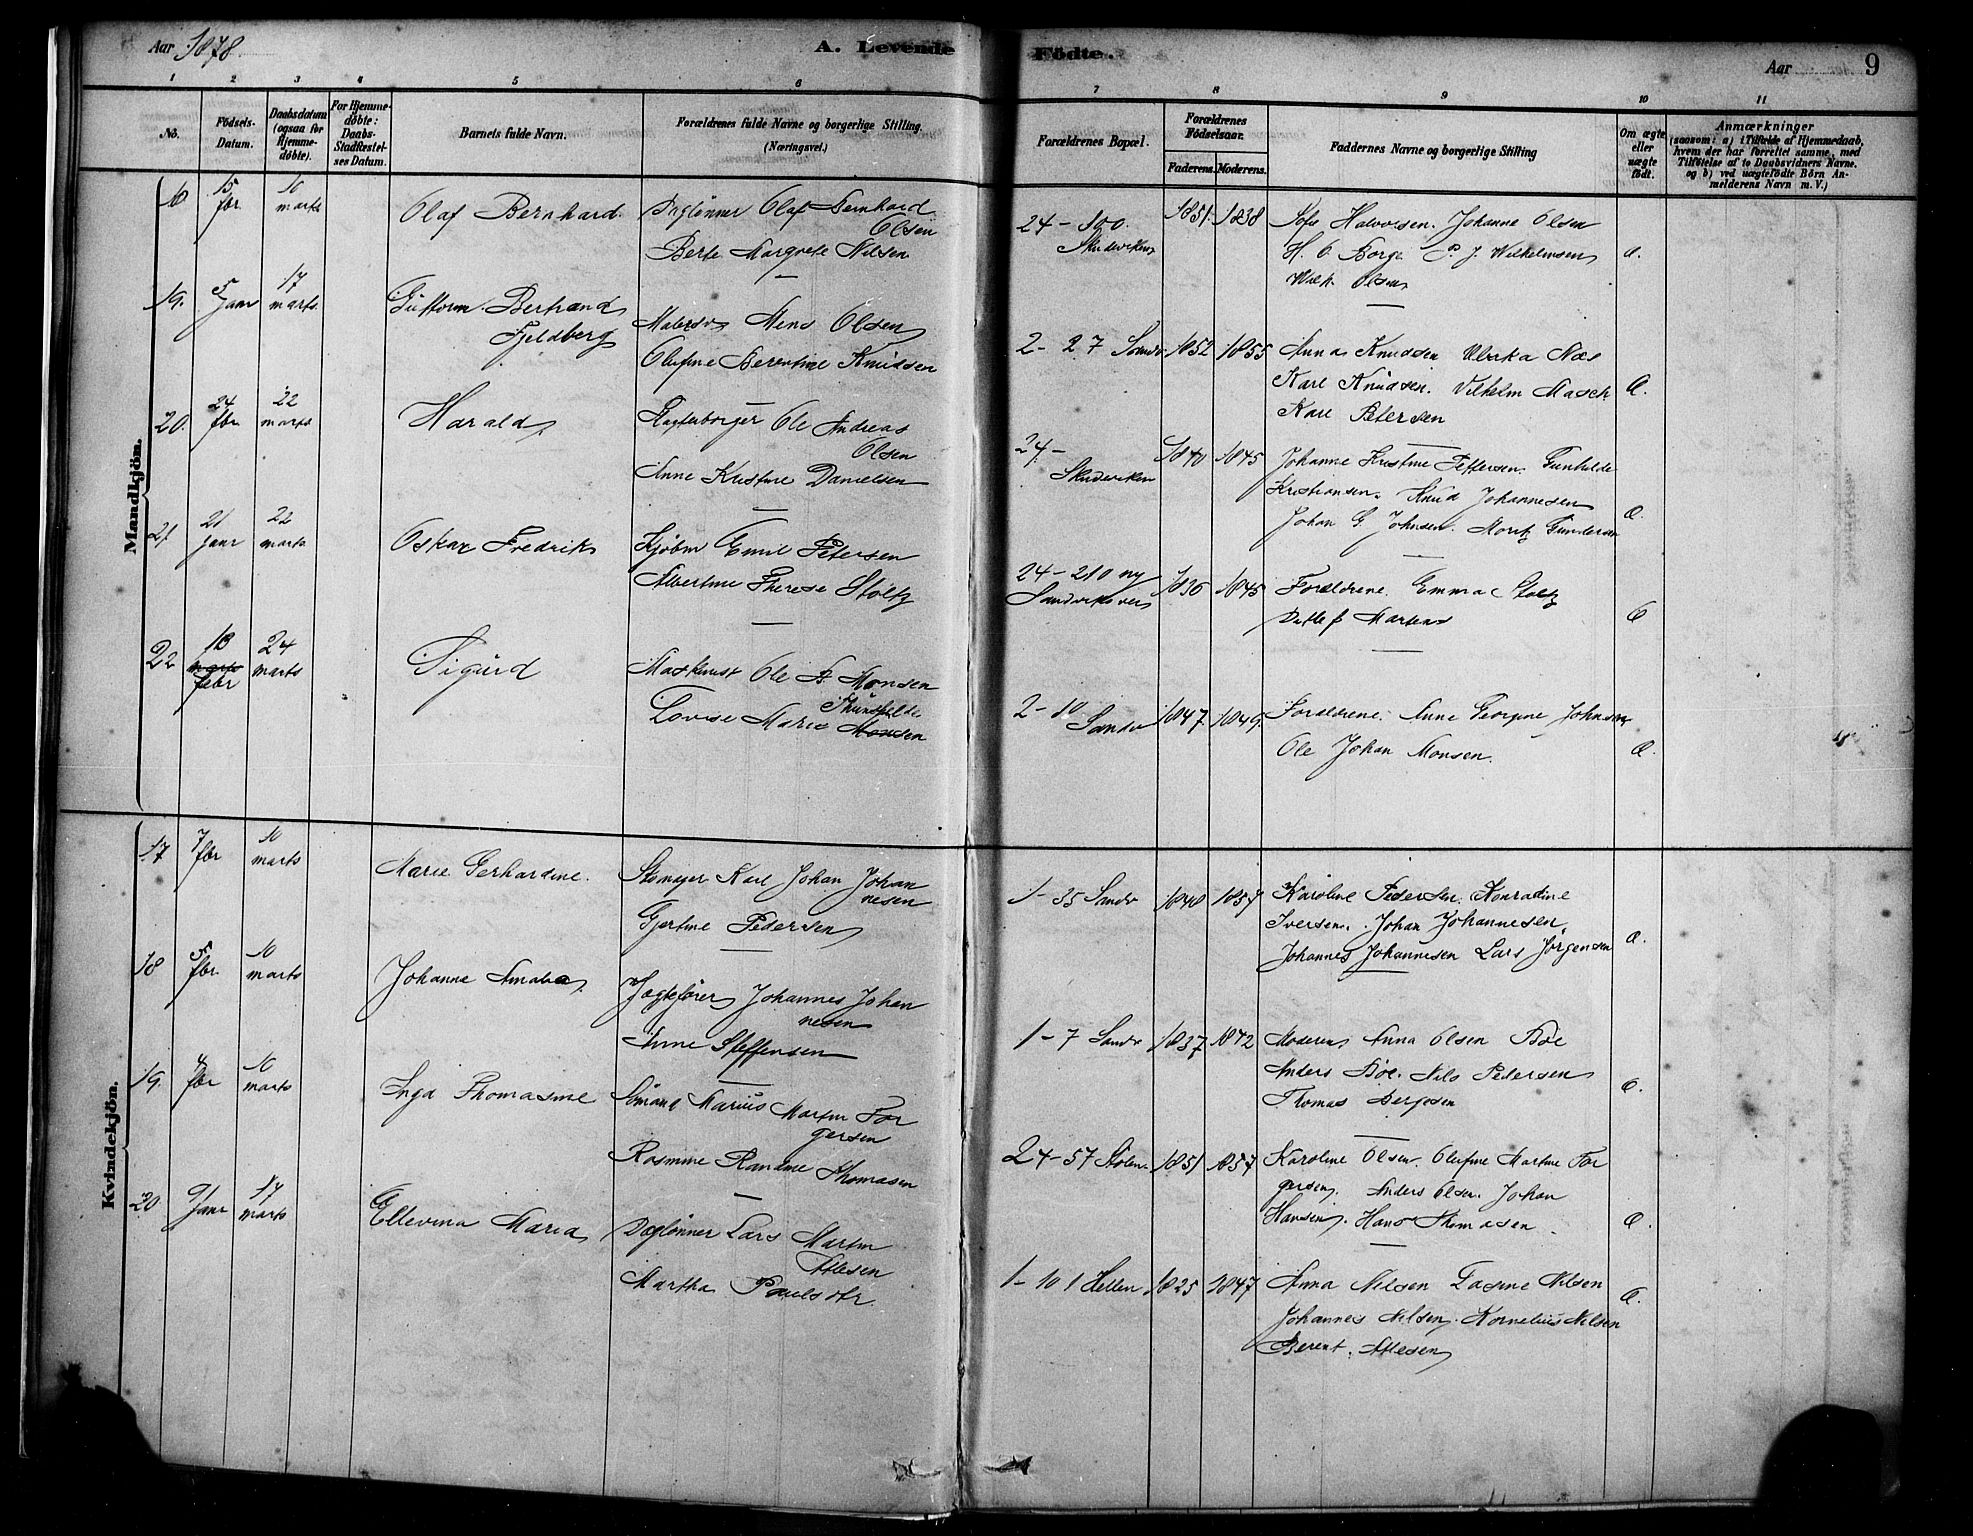 Aar 1878.
A. Levende Födte.
Aar 9
1 2 3 4 5 6 7 8 9 10 11
No.
Födsels-Datum.
Daabsdatum (ogsaa for Hjemme-döbte).
For Hjemme-döbte: Daabs-Stadfæstel-ses Datum.
Barnets fulde Navn.
Forældrenes fulde Navne og borgerlige Stilling. (Næringsvei.)
Forældrenes Bopæl.
Forældrenes Födselsaar.
Faderens. Moderens.
Faddernes Navne og borgerlige Stilling
Om ægte eller uægte födt.
Anmærkninger
(saasom: a) i Tilfælde af Hjemmedaab,
hvem der har forrettet samme, med
Tilföielse af to Daabsvidners Navne.
og b) ved uægtefödte Börn An-
melderens Navn m. V.)
Mandkjön.
15 fbr 10 marts Olaf Bernhard. Daglönner Olaf Bernhard
Olsen
Berte Margrete Nilsen
24 - 190. Skudeviken 1851. 1838 Sofie Halvorsen. Johanne Olsen
H. O. Borge P. J. Wilhelmsen Æ.
Wilh. Olsen
19. 5 Janr 17 marts Guttorm Bertrand
Fjeldberg
Malersv Mens Olsen
Olufine Berentine Knudsen
2 - 27 Sandv 1852 1855 Anna Knudsen Ulrika Næs
Karl Knudsen. Vilhelm Masch Æ.
Karl Petersen
20. 24 fbr 22 marts Harald Ole Andreas
Olsen
Anne Kristine Danielsen
24 - Skudeviken 1840 1845 Johanne Kristine Pettersen. Gunhilde
Kristiansen. Knud Johannesen Æ.
Johan G. Johnsen. Moritz Gundersen
21. 21 Janr 22 marts Oskar Fredrik Kjöbm Emil Petersen
Albertine Therese Stöltz
24 - 210 ny Sandviksvei 1836 1845 Forældrene. Emma Stoltz
Detlef Martens Æ
22 18 marts febr 24 marts Sigurd Maskinist Ole A. Monsen
Lovise Marie Monsen
2 - 10 Sandv 1847. 1849. Forældrene. Anne Georgine Johnsen
Ole Johan Monsen. Æ.
Kvindekjön.
17 7 fbr 10 marts Marie Gerhardine. Skomager Karl Johan Johan
nesen
Gjertine Pedersen
1 - 35 Sandv 1848 1857 Karoline Pedersen. Konradine
Iversen. Johan Johannesen. Æ.
Johannes Johannesen Lars Jörgensen
18 5 fbr. 10 marts Johanne Amalia. Jægtefører Johannes Johan
nesen
Anne Steffensen
1 - 7 Sandv 1837 1842 Moderen Anna Olsen Böe
Anders Böe. Nils Pedersen Æ.
Thomas Børgesen
19. 4 fbr 10 marts Inga Thomasine Sömand Marius Martin Tor
gersen
Rosmine Randine Thomasen
24 - 57 Stölen. 1851 1857 Karoline Olsen. Olufine Martine Tor
gersen. Anders Olsen. Johan
Hansen. Hans Thomasen Æ.
20 9 Janr 17 marts Ellevina Maria Daglönner Lars Martin
Atlesen
Martha Paulsdtr.
1 - 101 Hellen 1825 1847 Anna Nilsen Lasine Nilsen Æ.
Johannes Nilsen. Kornelius Nilsen
Berent. Atlesen